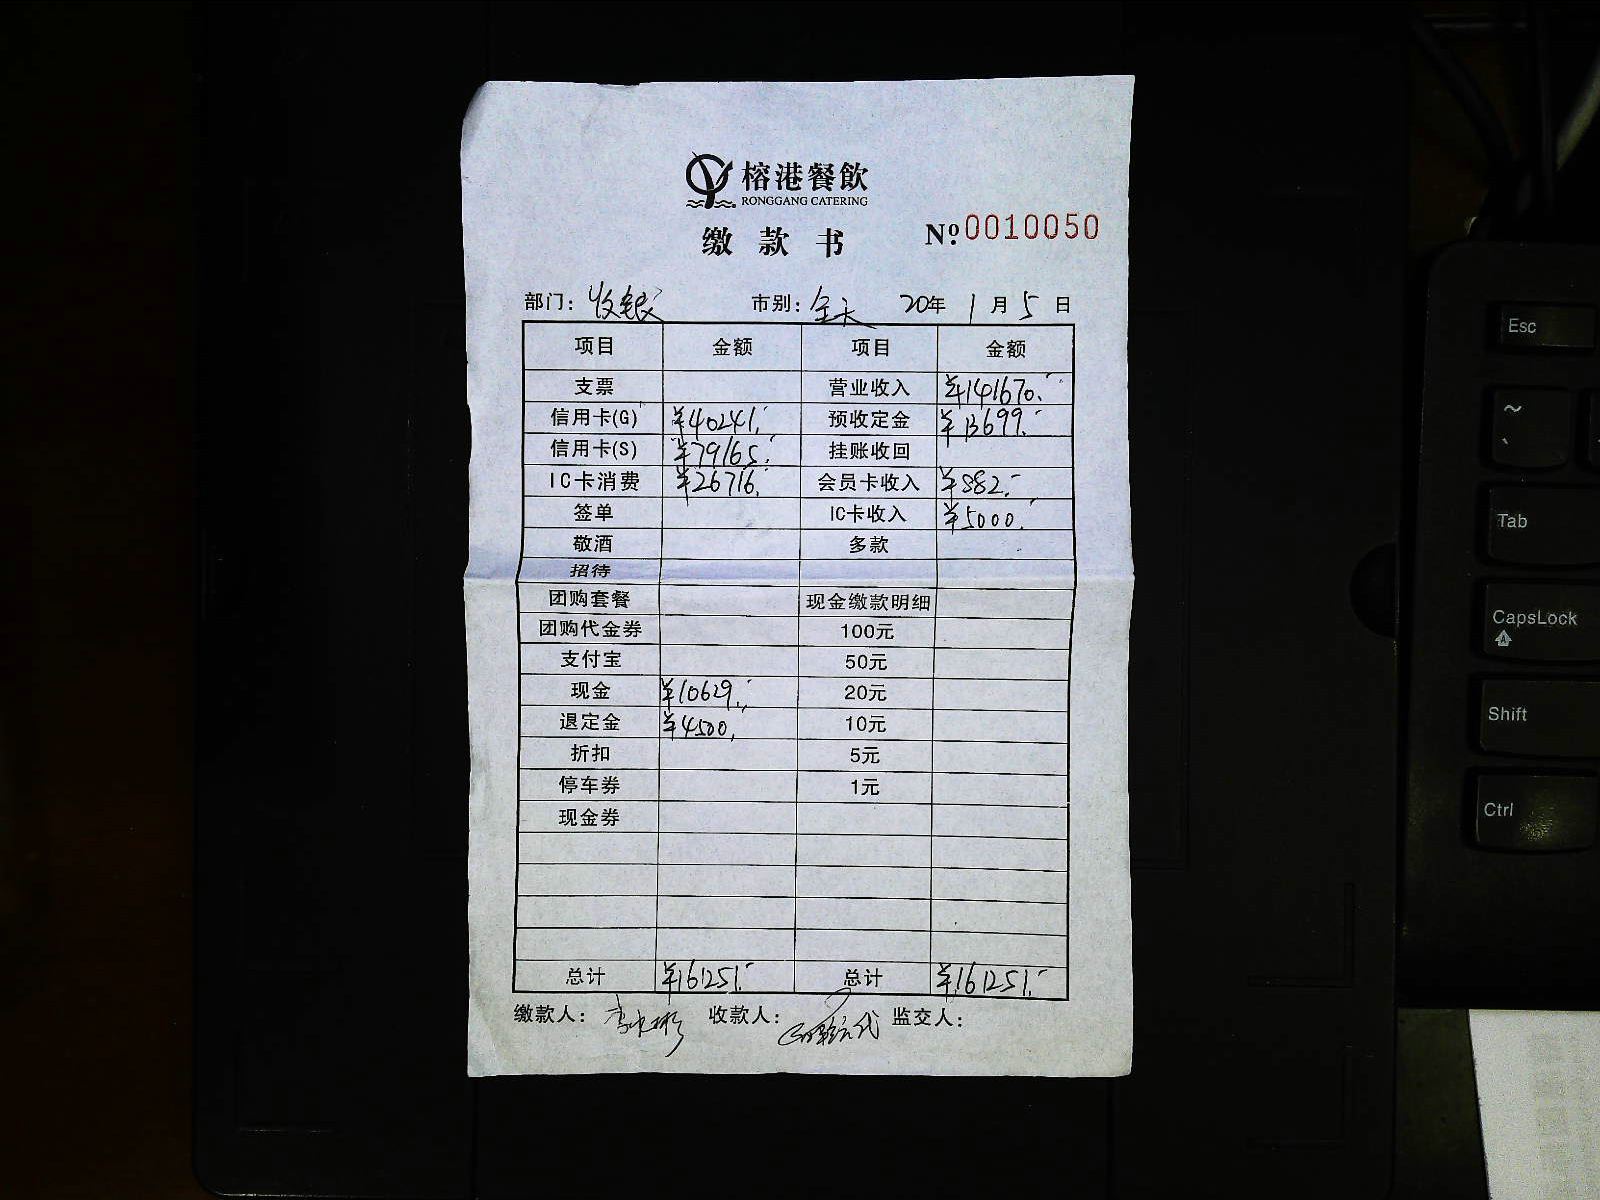 榕港餐飲
RONGGANG CATERING
缴款书 Nº:0010050
部门: 收银 市别: 全天 20年 1月 5日
项目 金额 项目 金额
支票 营业收入 ¥141670.-
信用卡(G) ¥40241.- 预收定金 ¥13699.-
信用卡(S) ¥79165.- 挂账收回
IC卡消费 ¥26716.- 会员卡收入 ¥882.-
签单 IC卡收入 ¥5000.-
敬酒 多款
招待
团购套餐 现金缴款明细
团购代金券 100元
支付宝 50元
现金 ¥10629.- 20元
退定金 ¥4500.- 10元
折扣 5元
停车券 1元
现金券
总计 ¥161251.- 总计 ¥161251.-
缴款人: 收款人: 监交人:
Esc
~
Tab
CapsLock
Shift
Ctrl